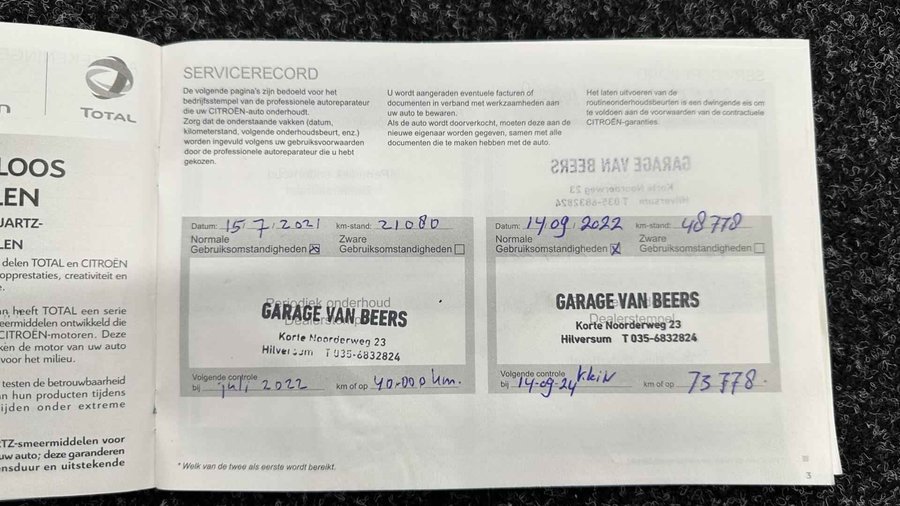 TOTAL
LOOS
LEN
UARTZ-
LEN
delen TOTAL en CITROËN
opprestaties, creativiteit en
e.
heeft TOTAL een serie
eermiddelen ontwikkeld die
CITROËN-motoren. Deze
ken de motor van uw auto
voor het milieu.
testen de betrouwbaarheid
an hun producten tijdens
ijden onder extreme
RTZ-smeermiddelen voor
uw auto; deze garanderen
ensduur en uitstekende
SERVICERECORD
De volgende pagina's zijn bedoeld voor het
bedrijfsstempel van de professionele autoreparateur
die uw CITROËN-auto onderhoudt.
Zorg dat de onderstaande vakken (datum,
kilometerstand, volgende onderhoudsbeurt, enz.)
worden ingevuld volgens uw gebruiksvoorwaarden
door de professionele autoreparateur die u hebt
gekozen.
U wordt aangeraden eventuele facturen of
documenten in verband met werkzaamheden aan
uw auto te bewaren.
Als de auto wordt doorverkocht, moeten deze aan de
nieuwe eigenaar worden gegeven, samen met alle
documenten die te maken hebben met de auto.
Het laten uitvoeren van de
routineonderhoudsbeurten is een dwingende eis om
te voldoen aan de voorwaarden van de contractuele
CITROËN-garanties.
Datum: 15/7/2021 km-stand: 21080
Normale Zware
Gebruiksomstandigheden Gebruiksomstandigheden
Periodiek onderhoud
Dealerstempel
GARAGE VAN BEERS
Korte Noorderweg 23
Hilversum T 035-6832824
Volgende controle
bij juli 2022 km of op 40.000 km.
Datum: 14/09/2022 km-stand: 48778
Normale Zware
Gebruiksomstandigheden Gebruiksomstandigheden
GARAGE VAN BEERS
Dealerstempel
Korte Noorderweg 23
Hilversum T 035-6832824
Volgende controle
bij 14-09-24 klein km of op 73778.
* Welk van de twee als eerste wordt bereikt.
3